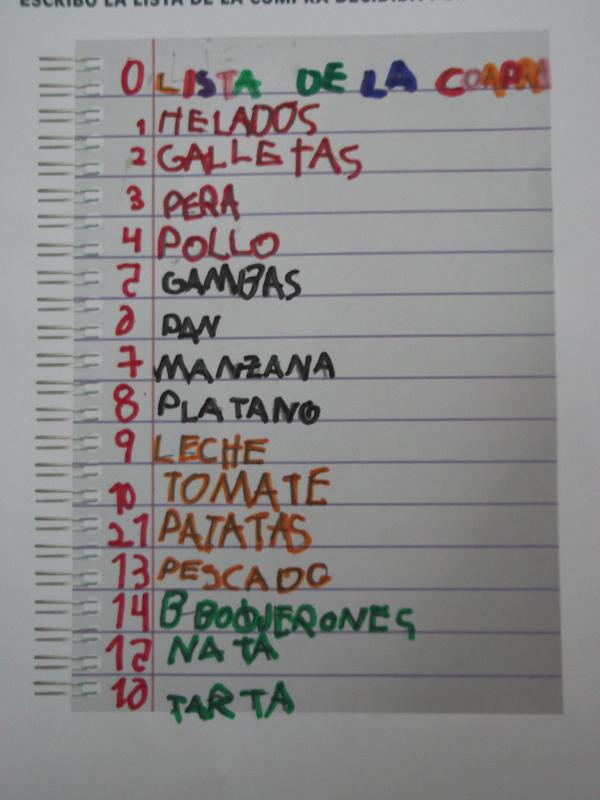 0 LISTA DE LA COAPRA
1 HELADOS
2 GALLETAS
3 PERA
4 POLLO
5 GAMBAS
6 PAN
7 MANZANA
8 PLATANO
9 LECHE
10 TOMATE
21 PATATAS
13 PESCADO
14 B BOQUERONES
12 NATA
10 TARTA